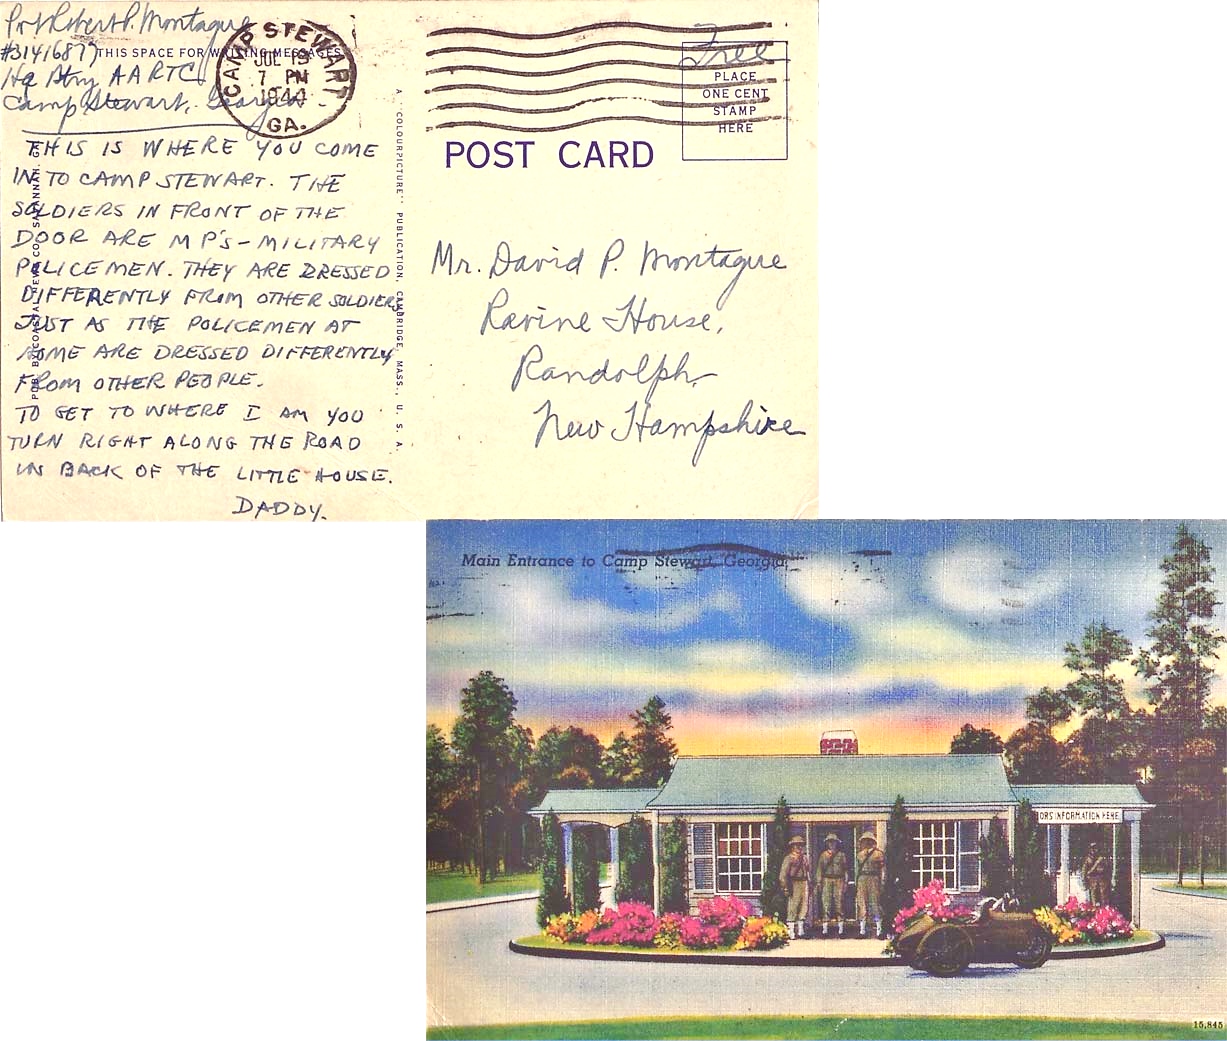 Pvt Robert P. Montague
#31416877
THIS SPACE FOR WRITING MESSAGES
Hq Btry AARTC
Camp Stewart, Georgia.
CAMP STEWART
JUL 19
7 PM
1944
GA.
Free
PLACE
ONE CENT
STAMP
HERE
POST CARD
THIS IS WHERE YOU COME
IN TO CAMP STEWART. THE
SOLDIERS IN FRONT OF THE
DOOR ARE MP'S - MILITARY
POLICEMEN. THEY ARE DRESSED
DIFFERENTLY FROM OTHER SOLDIERS
JUST AS THE POLICEMEN AT
HOME ARE DRESSED DIFFERENTLY
FROM OTHER PEOPLE.
TO GET TO WHERE I AM YOU
TURN RIGHT ALONG THE ROAD
IN BACK OF THE LITTLE HOUSE.
DADDY.
PUB. BY COASTAL NEWS CO., SAVANNAH, GA.
A "COLOURPICTURE" PUBLICATION, CAMBRIDGE, MASS., U. S. A.
Mr. David P. Montague
Ravine House,
Randolph,
New Hampshire
Main Entrance to Camp Stewart, Georgia
ORS INFORMATION HERE
15,845